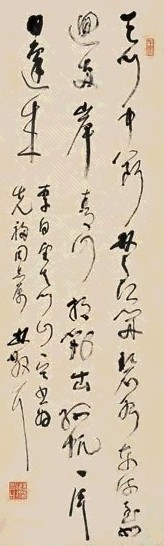 天門中斷楚江開碧水東流至此
迴兩岸青山相對出孤帆一片
日邊來
李白望天門山
同志屬 林散耳